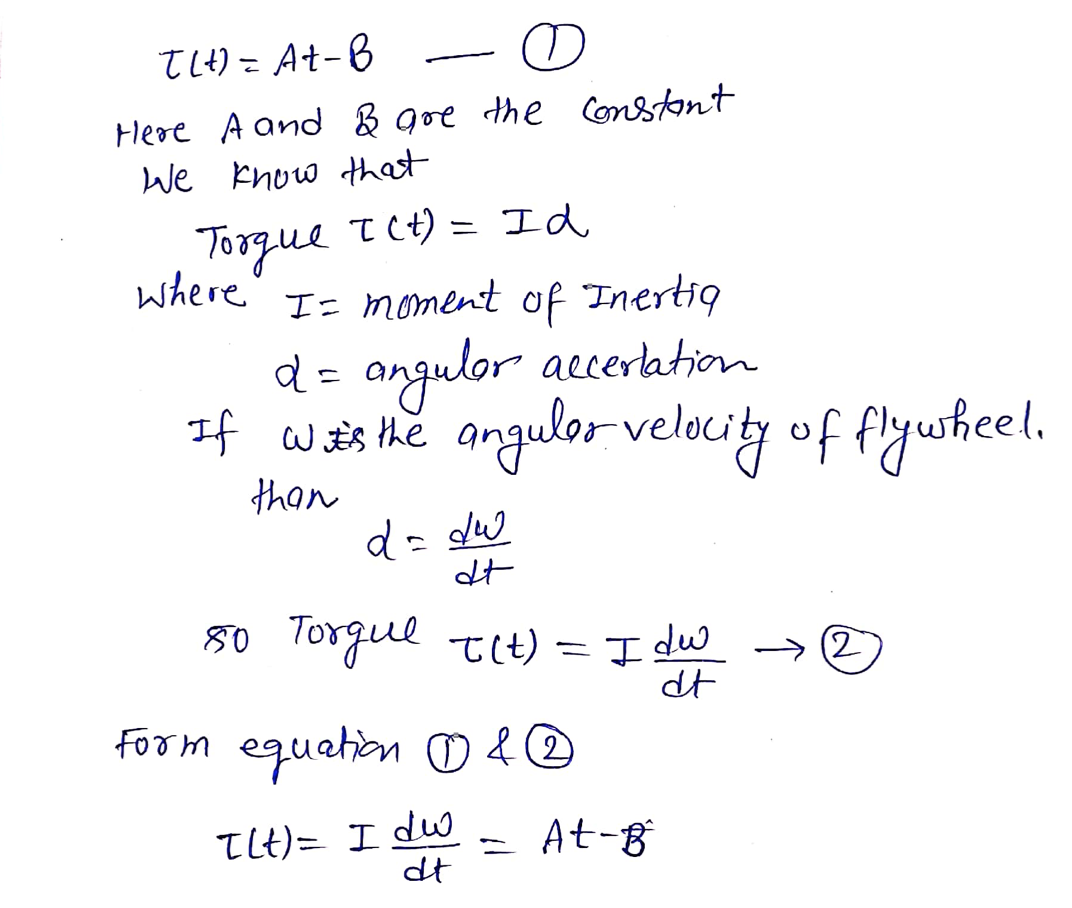 τ(t) = At-B — ①
Here A and B are the constant
We know that
Torque τ(t) = Iα
where I = moment of Inertia
α = angular accerlation
If ω is the angular velocity of flywheel.
than
α = dω/dt
so Torque τ(t) = I dω/dt → ②
Form equation ① & ②
τ(t) = I dω/dt = At-B